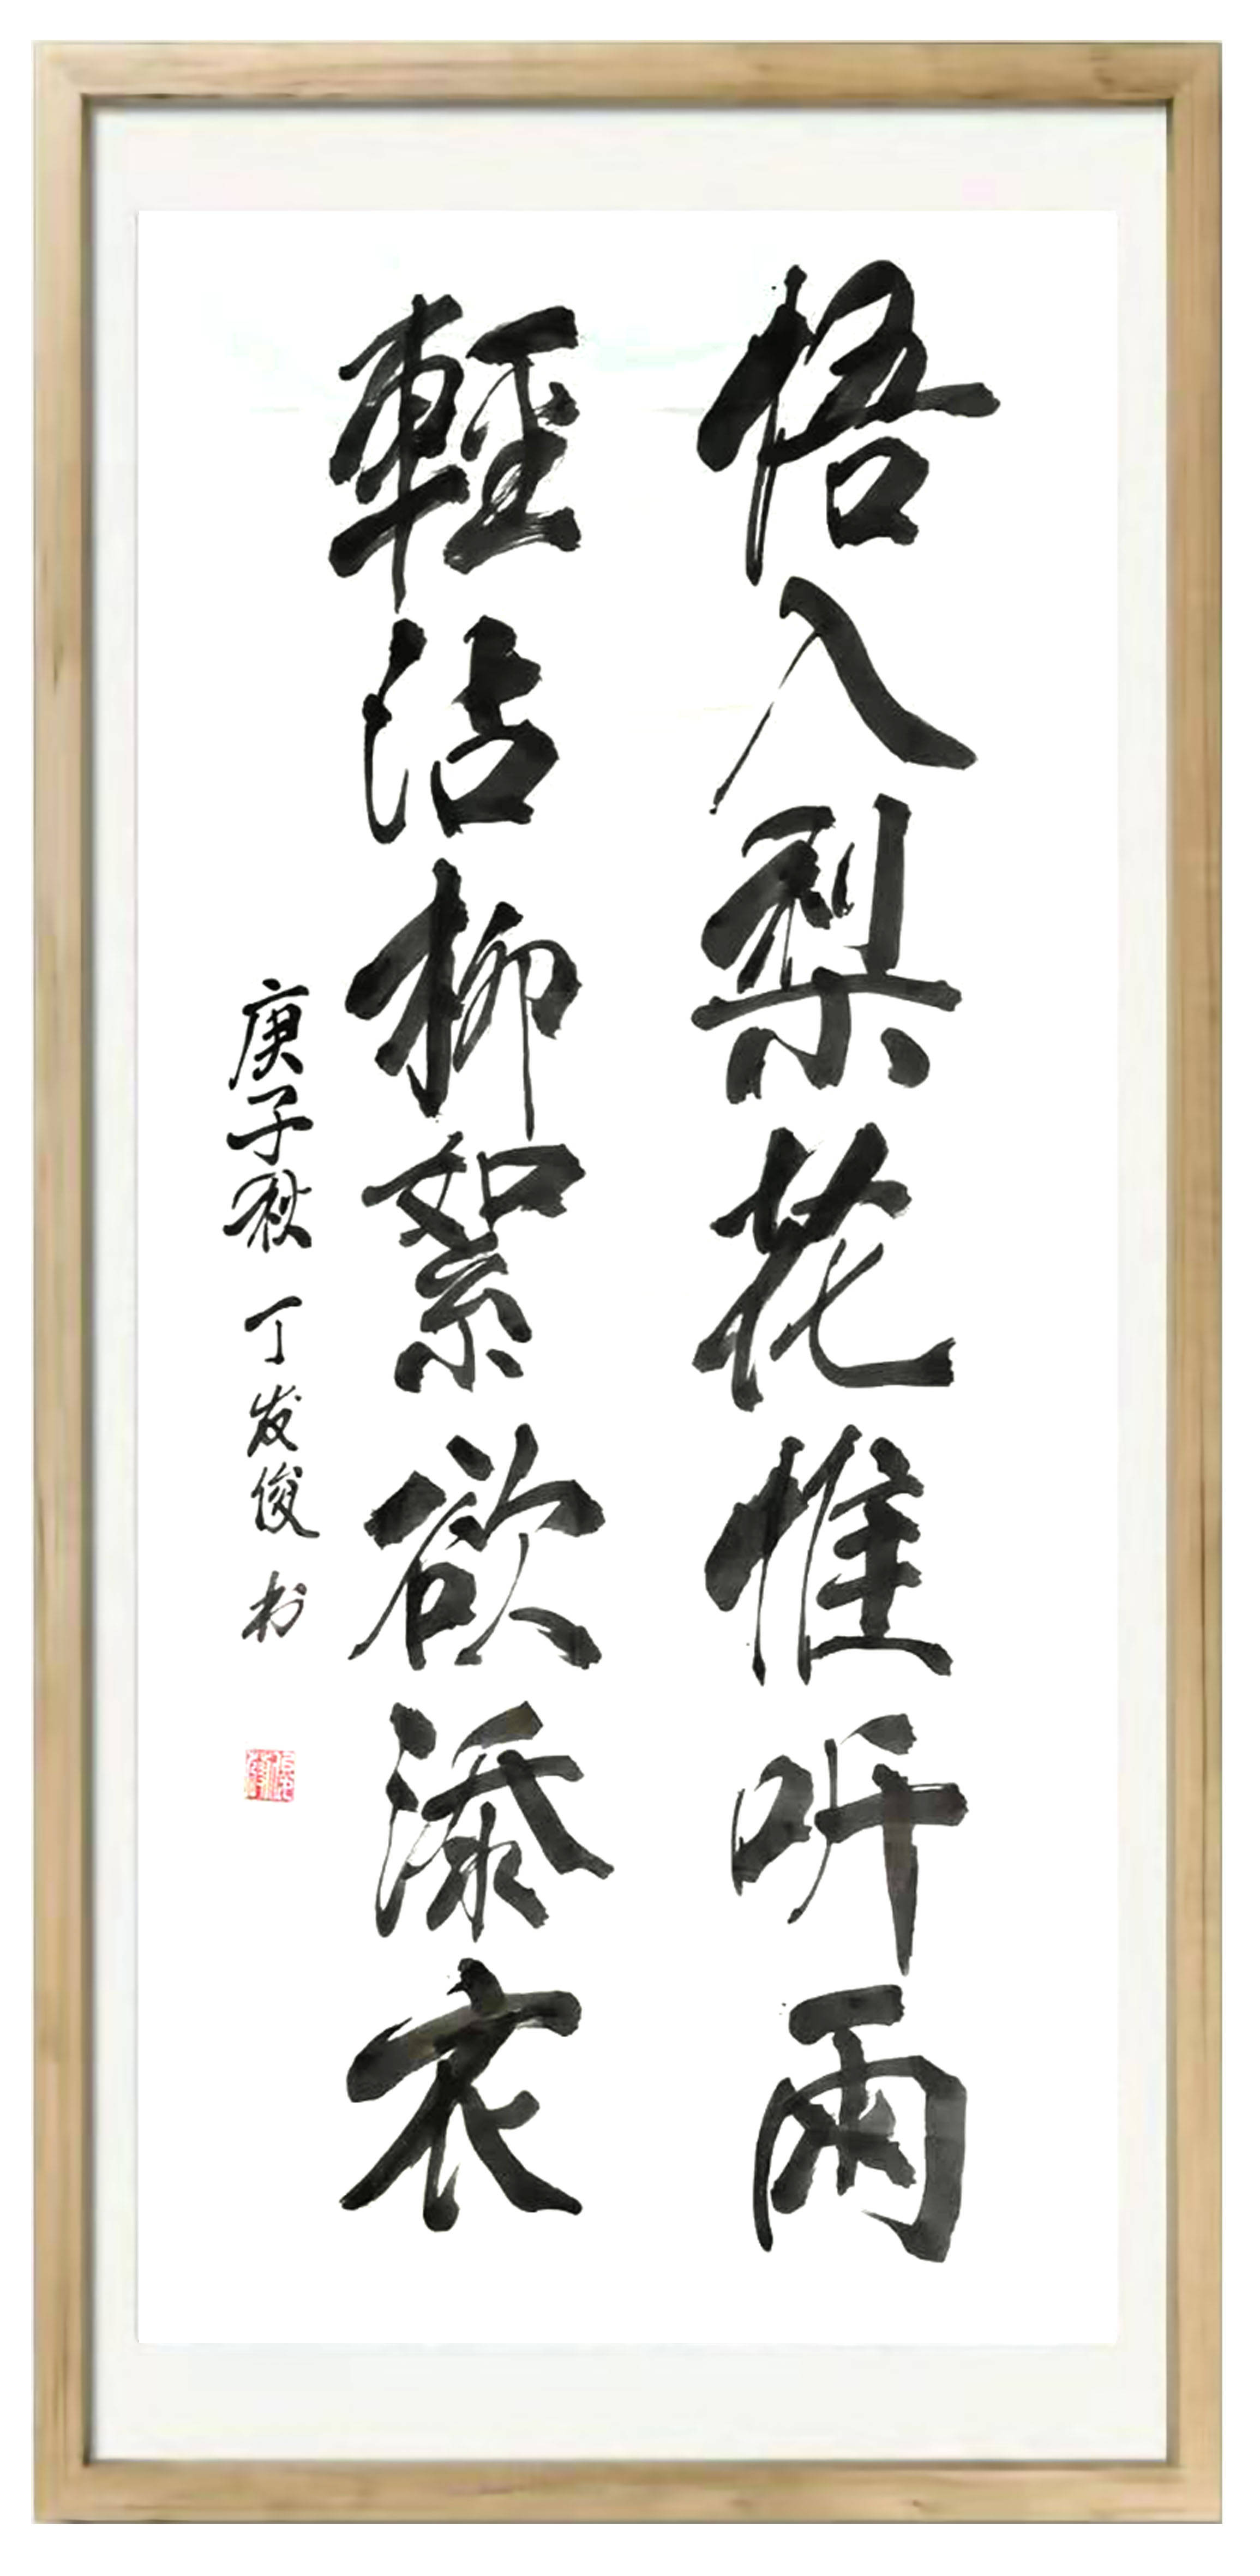 悟入梨花惟听雨
輕沾柳絮欲添衣
庚子秋 丁发俊 书